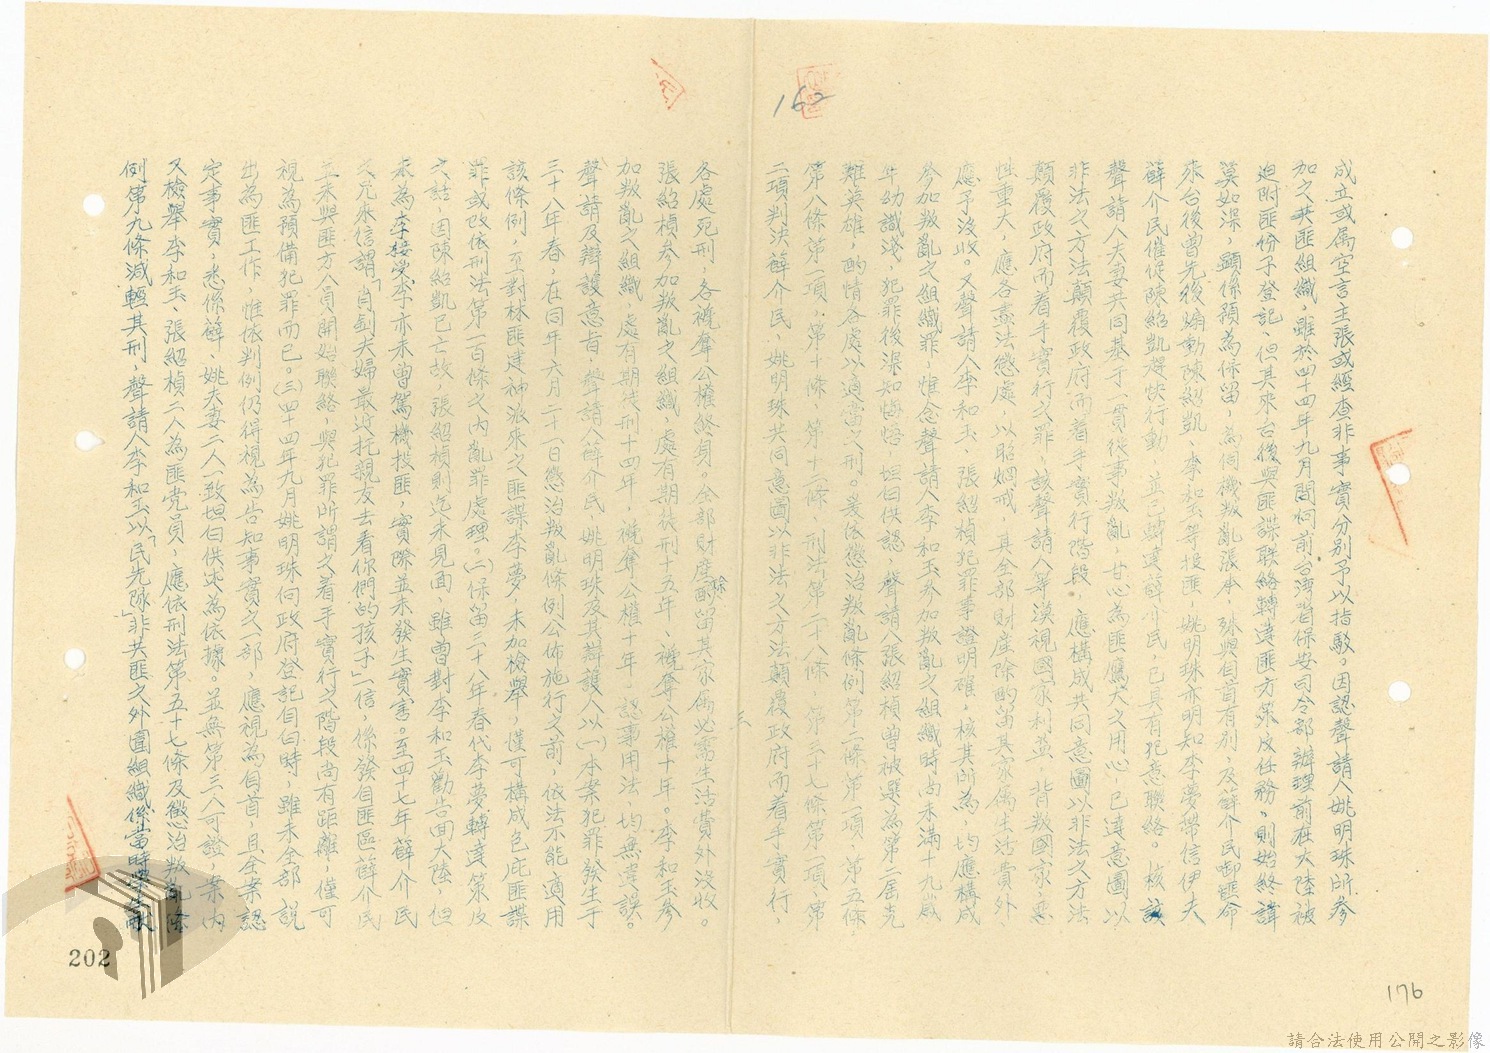 162
成立或屬空言主張或經查非事實分別予以指駁。因認聲請人姚明珠所參
加之共匪組織，雖於四十四年九月間向前台灣省保安司令部辦理前在大陸被
迫附匪份子登記，但其來台後與匪諜聯絡轉達匪方策反任務，則始終諱
莫如深，顯係預為保留，為伺機叛亂張本，殊與自首有別，及薛介民啣匪命
來台後曾先後煽動陳紹凱、李和玉等投匪，姚明珠亦明知李夢帶信伊夫
薛介民催促陳紹凱趕快行動，並已轉達薛介民，已具有犯意聯絡。核該
聲請人夫妻共同基于一貫從事叛亂，甘心為匪鷹犬之用心，已達意圖以
非法之方法顛覆政府而着手實行階段，應構成共同意圖以非法之方法
顛覆政府而着手實行之罪，該聲請人等漠視國家利益，背叛國家，惡
性重大，應各盡法懲處，以昭烱戒，其全部財產除酌留其家屬生活費外，
應予沒收。又聲請人李和玉、張紹楨犯罪事證明確，核其所為，均應構成
參加叛亂之組織罪，惟念聲請人李和玉參加叛亂之組織時尚未滿十九歲
年幼識淺，犯罪後深知悔悟，坦白供認，聲請人張紹楨曾被選為第二屆克
難英雄，酌情各處以適當之刑。爰依懲治叛亂條例第二條第一項、第五條
第八條第一項、第十條、第十二條、刑法第二十八條、第三十七條第一項、第
二項判決薛介民、姚明珠共同意圖以非法之方法顛覆政府而着手實行，
各處死刑，各褫奪公權終身。全部財產除酌留其家屬必需生活費外沒收。
張紹楨參加叛亂之組織，處有期徒刑十五年，褫奪公權十年。李和玉參
加叛亂之組織，處有期徒刑十四年，褫奪公權十年，認事用法，均無違誤。
聲請及辯護意旨，聲請人薛介民、姚明珠及其辯護人以(一)本案犯罪發生于
三十八年春，在同年六月二十一日懲治叛亂條例公佈施行之前，依法不能適用
該條例，至對林匪建神派來之匪諜李夢，未加檢舉，僅可構成包庇匪諜
罪或改依刑法第一百條之內亂罪處理。(二)保留三十八年春代李夢轉達策反
之話，因陳紹凱已亡故，張紹楨則迄未見面，雖曾對李和玉勸告回大陸，但
未為李接受，李亦未曾駕機投匪，實際並未發生實害。至四十七年薛介民
之兄來信謂「肖釗夫婦最近托親友去看你們的孩子」一信，係發自匪區薛介民
並未與匪方人員開始聯絡，與犯罪所謂之着手實行之階段尚有距離，僅可
視為預備犯罪而已。(三)四十四年九月姚明珠向政府登記自白時，雖未全部說
出為匪工作，惟依判例仍得視為告知事實之一部，應視為自首，且全案認
定事實，悉係薛、姚夫妻二人一致坦白供述為依據。並無第三人可證，案內
又檢舉李和玉、張紹楨二人為匪党員，應依刑法第五十七條及懲治叛亂條
例第九條減輕其刑，聲請人李和玉以「民先隊」非共匪之外圍組織係當時學生敵
202
176
請合法使用公開之影像